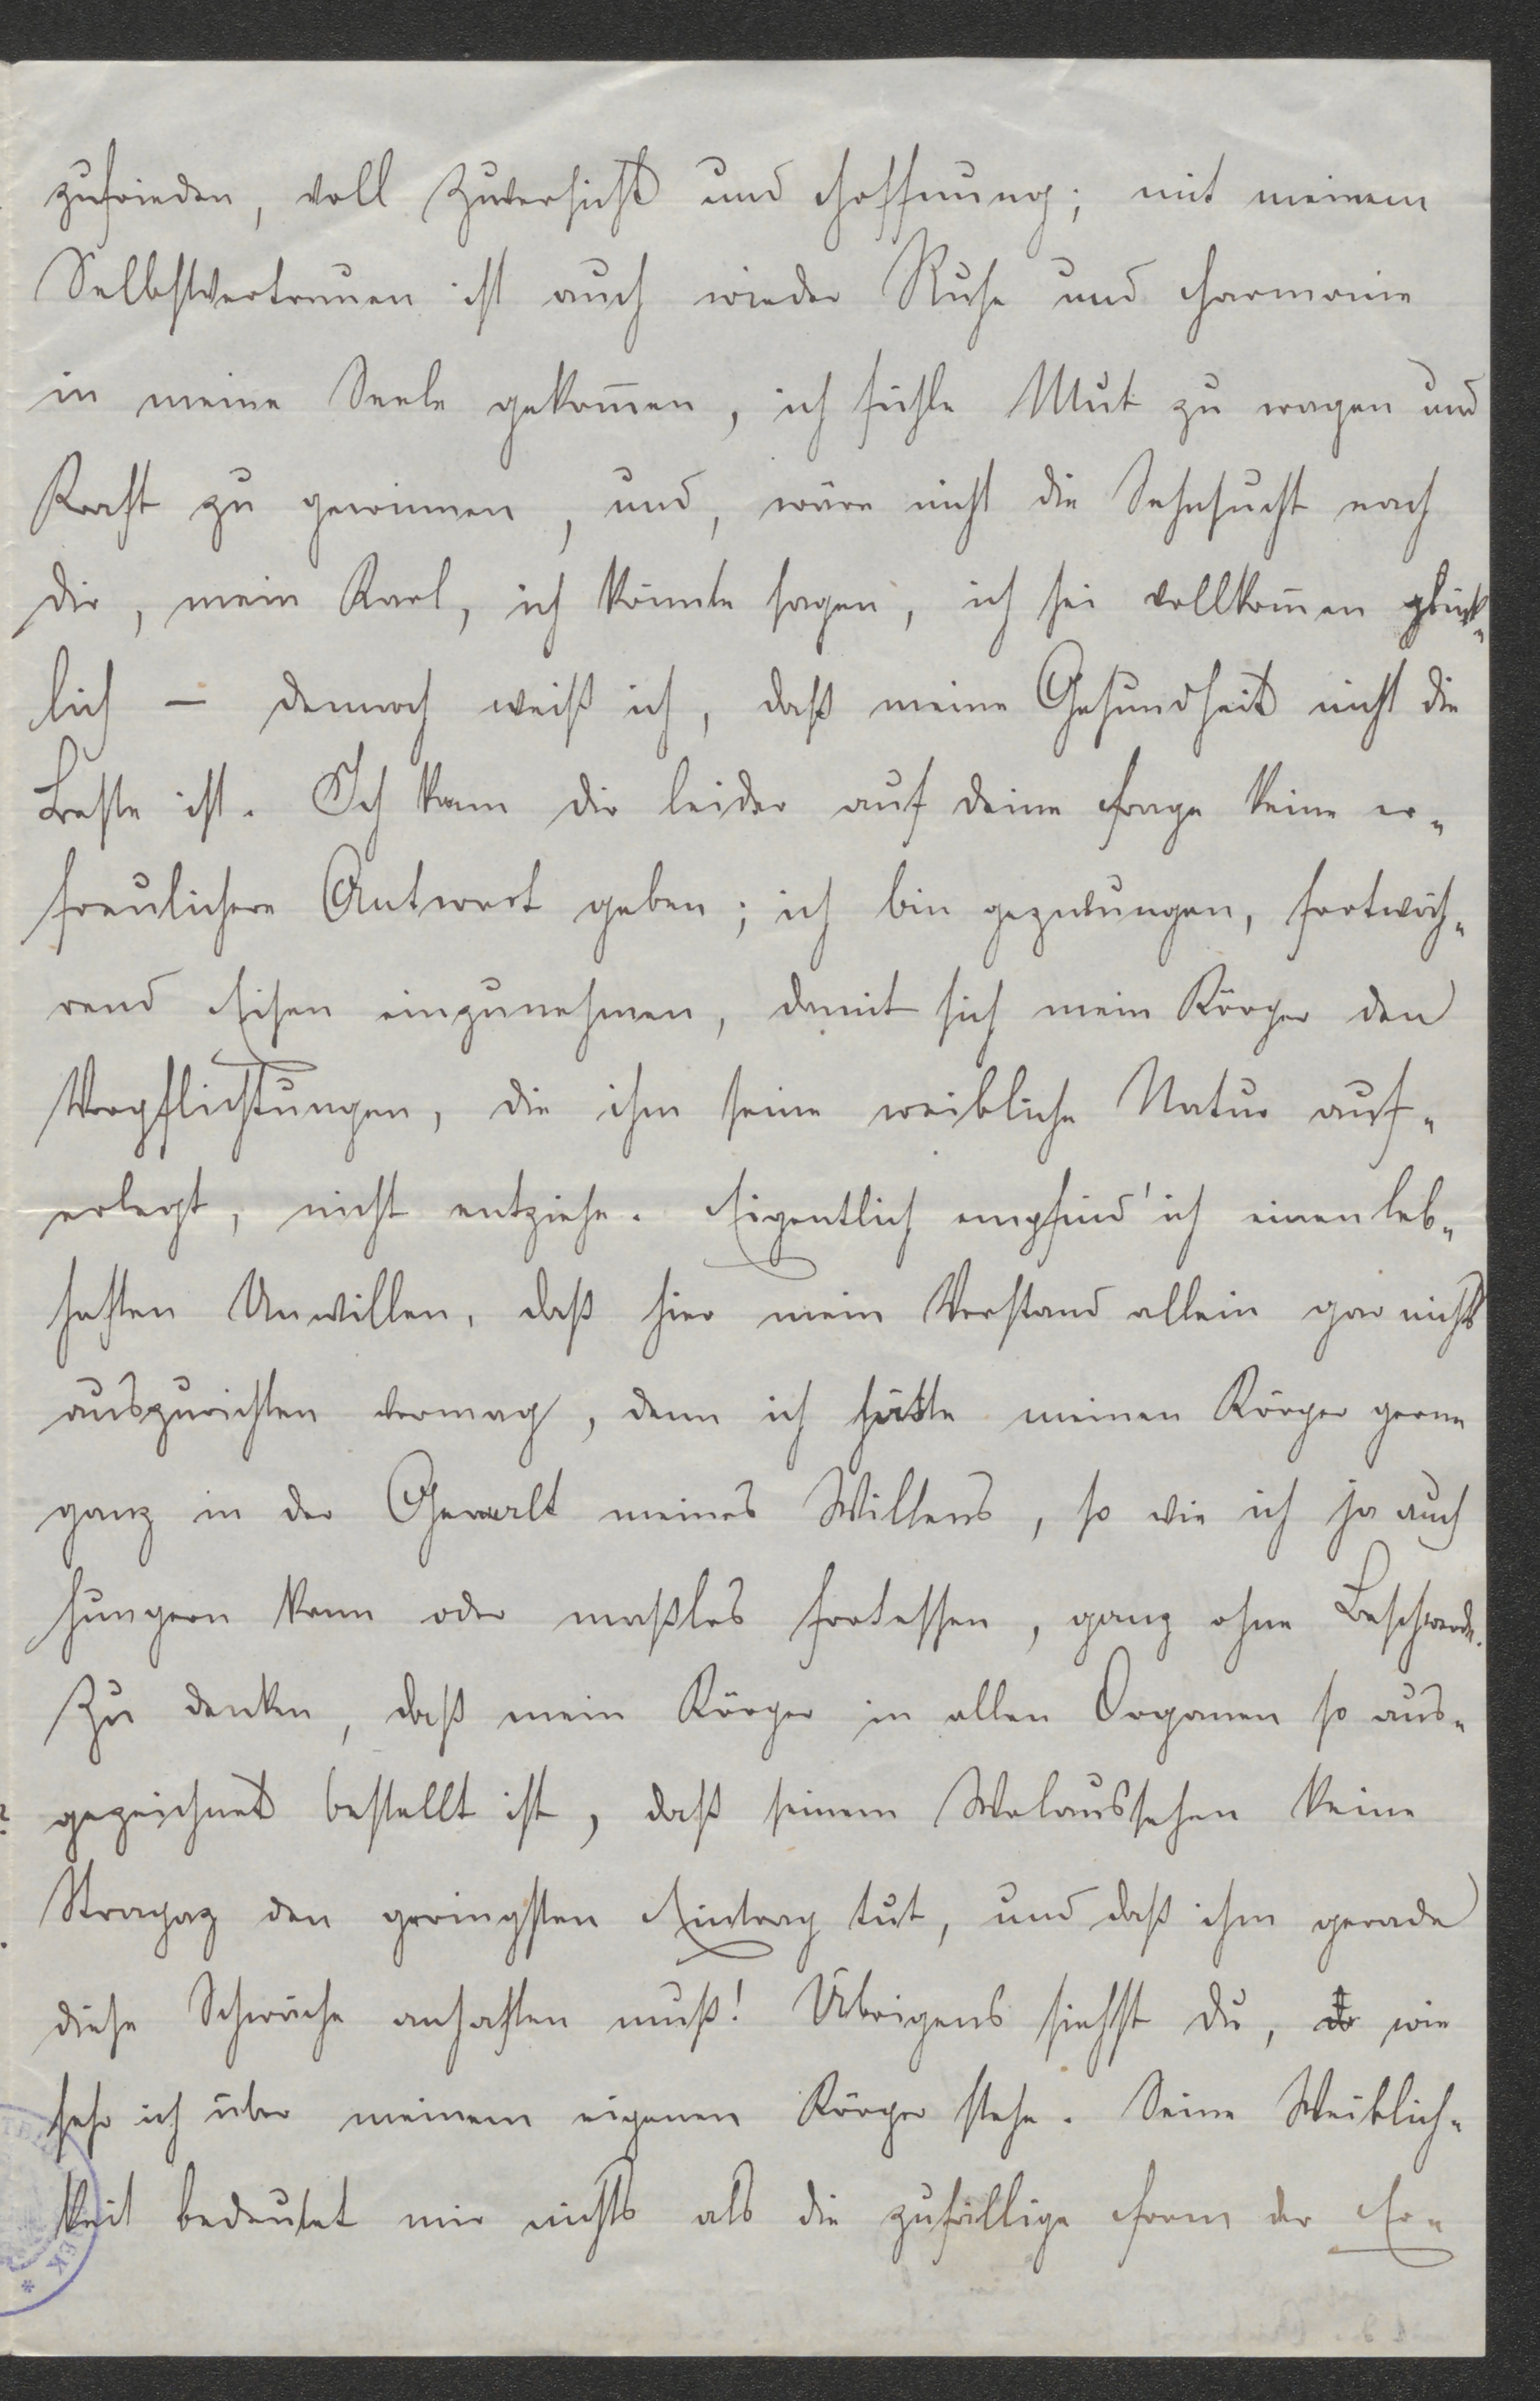 zufrieden, voll Zuversicht und Hoffnung; mit meinem
Selbstvertrauen ist auch wieder Ruhe und Harmonie
in meine Seele gekom̅en, ich fühle Mut zu wagen und
Kraft zu gewinnen, und, wäre nicht die Sehnsucht nach
dir, mein Karl, ich könnte sagen, ich sei vollkom̅en glück-
lich – dennoch weiß ich, daß meine Gesundheit nicht die
Beste ist. Ich kann dir leider auf deine Frage keine er-
freulichere Antwort geben; ich bin gezwungen, fortwäh-
rend Eisen einzunehmen, damit sich mein Körper den
Verpflichtungen, die ihm seine weibliche Natur auf-
erlegt, nicht entziehe. Eigentlich empfind' ich einen leb-
haften Unwillen, daß hier mein Verstand allein gar nichts
auszurichten vermag, denn ich hätte meinen Körper gerne
ganz in der Gewalt meines Willens, so wie ich ja auch
hungern kann oder maßlos fortessen, ganz ohne Beschwerde.
Zu denken, daß mein Körper in allen Organen so aus-
gezeichnet bestellt ist, daß seinem Wolaussehen keine
Strapaz den geringsten Eintrag tut, und daß ihm gerade
diese Schwäche anhaften muß! Übrigens siehst du, wie
sehr ich über meinem eigenen Körper stehe. Seine Weiblich-
keit bedeutet mir nichts als die zufällige Form der Er-